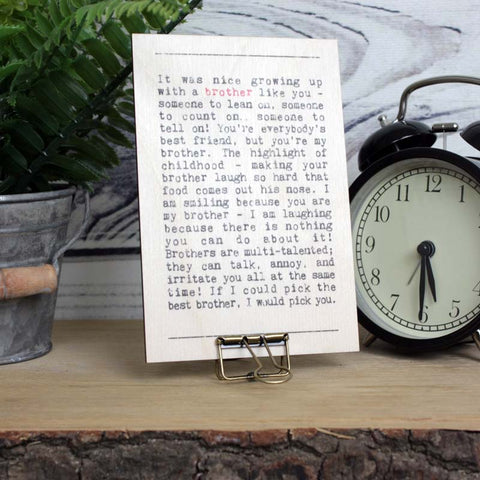 It was nice growing up
with a brother like you -
someone to lean on, someone
to count on.. someone to
tell on! You're everybody's
best friend, but you're my
brother. The highlight of
childhood - making your
brother laugh so hard that
food comes out his nose. I
am smiling because you are
my brother - I am laughing
because there is nothing
you can do about it!
Brothers are multi-talented;
they can talk, annoy, and
irritate you all at the same
time! If I could pick the
best brother, I would pick you.
11 12 1
10
9
8
7 6 5